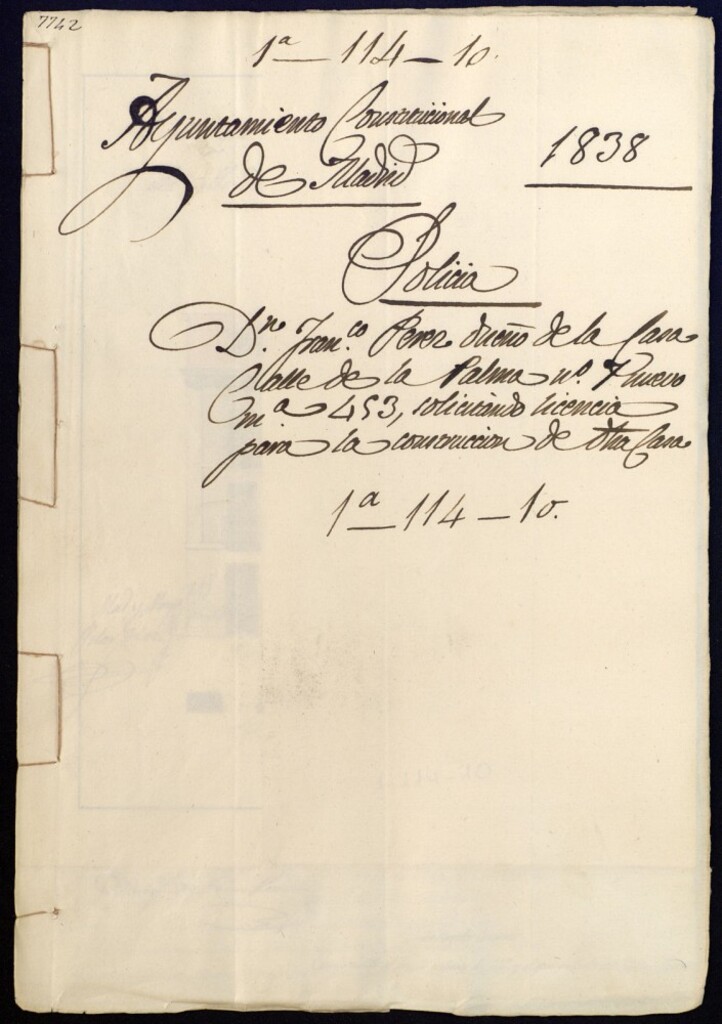 7742
1ª — 114 — 10.
Ayuntamiento Constitucional
de Madrid
1838
Policia
D.n Fran.co Perez dueño de la Casa
Calle de la Palma nº. 7 nuevo
mª 453, solicitando licencia
para la construccion de dha Casa
1ª — 114 — 10.